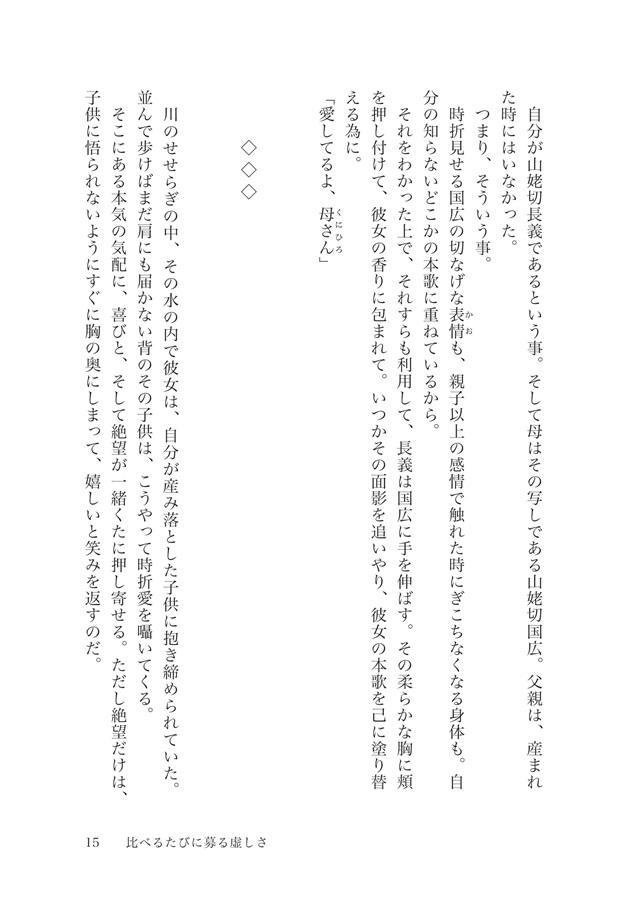 自分が山姥切長義であるという事。そして母はその写しである山姥切国広。父親は、産まれ
た時にはいなかった。
つまり、そういう事。
時折見せる国広の切なげな表情も、親子以上の感情で触れた時にぎこちなくなる身体も。自
かお
分の知らないどこかの本歌に重ねているから。
それをわかった上で、それすらも利用して、長義は国広に手を伸ばす。その柔らかな胸に頬
を押し付けて、彼女の香りに包まれて。いつかその面影を追いやり、彼女の本歌を己に塗り替
える為に。
「愛してるよ、母さん」
くにひろ
◇◇◇
川のせせらぎの中、その水の内で彼女は、自分が産み落とした子供に抱き締められていた。
並んで歩けばまだ肩にも届かない背のその子供は、こうやって時折愛を囁いてくる。
そこにある本気の気配に、喜びと、そして絶望が一緒くたに押し寄せる。ただし絶望だけは、
子供に悟られないようにすぐに胸の奥にしまって、嬉しいと笑みを返すのだ。
15 比べるたびに募る虚しさ